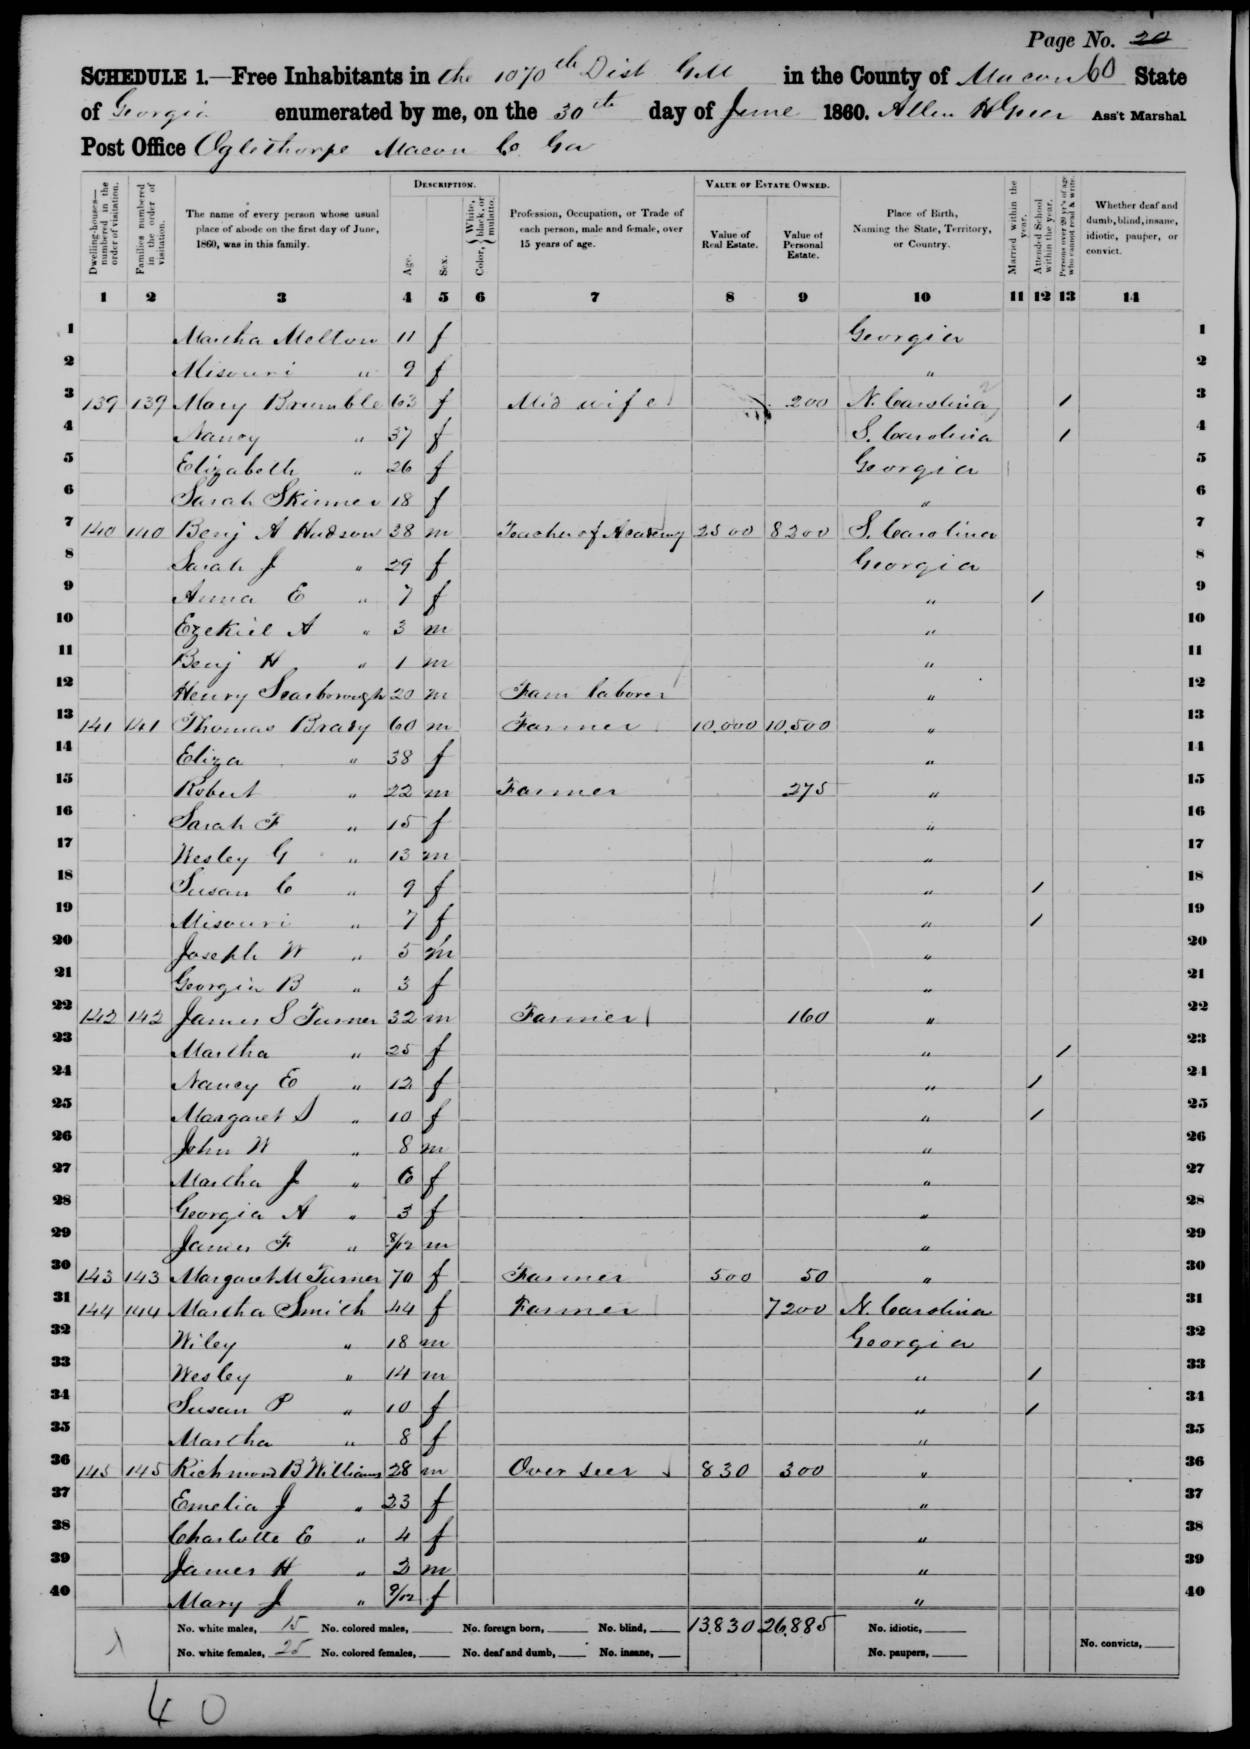 Page No. 20
SCHEDULE 1.—Free Inhabitants in the 1070th Dist G.M in the County of Macon 60 State
of Georgia enumerated by me, on the 30th day of June 1860. Allen H Greer Ass't Marshal
Post Office Oglethorpe Macon Co Ga
DESCRIPTION. VALUE OF ESTATE OWNED.
Dwelling-houses—numbered in the order of visitation. Families numbered in the order of visitation. The name of every person whose usual place of abode on the first day of June, 1860, was in this family. Age. Sex. Color, { White, black, or mulatto. Profession, Occupation, or Trade of each person, male and female, over 15 years of age. Value of Real Estate. Value of Personal Estate. Place of Birth, Naming the State, Territory, or Country. Married within the year. Attended School within the year. Persons over 20 y'rs of age who cannot read & write. Whether deaf and dumb, blind, insane, idiotic, pauper, or convict.
1 2 3 4 5 6 7 8 9 10 11 12 13 14
1 Martha Melton 11 f Georgia 1
2 Misouri " 9 f " 2
3 139 139 Mary Brumble 63 f Mid wife 200 N. Carolina / 3
4 Nancy " 37 f S. Carolina / 4
5 Elizabeth " 26 f Georgia 5
6 Sarah Skinner 18 f " 6
7 140 140 Benj A Hudson 38 m Teacher of Academy 2500 8200 S. Carolina 7
8 Sarah J " 29 f Georgia 8
9 Anna E " 7 f " / 9
10 Ezekiel A " 3 m " 10
11 Benj H " 1 m " 11
12 Henry Scarborough 20 m Farm laborer " 12
13 141 141 Thomas Brady 60 m Farmer 10.000 10.500 " 13
14 Eliza " 38 f " 14
15 Robert " 22 m Farmer 275 " 15
16 Sarah F " 15 f " 16
17 Wesley G " 13 m " 17
18 Susan C " 9 f " / 18
19 Misouri " 7 f " / 19
20 Joseph W " 5 m " 20
21 Georgia B " 3 f " 21
22 142 142 James S Turner 32 m Farmer 160 " 22
23 Martha " 25 f " / 23
24 Nancy E " 12 f " / 24
25 Margaret S " 10 f " / 25
26 John W " 8 m " 26
27 Martha J " 6 f " 27
28 Georgia A " 3 f " 28
29 James F " 8/12 m " 29
30 143 143 Margaret M Turner 70 f Farmer 500 50 " 30
31 144 144 Martha Smith 44 f Farmer 7200 N. Carolina 31
32 Wiley " 18 m Georgia 32
33 Wesley " 14 m " / 33
34 Susan P " 10 f " / 34
35 Martha " 8 f " 35
36 145 145 Richmond B Williams 28 m Over seer 830 300 " 36
37 Emelia J " 23 f " 37
38 Charlotte E " 4 f " 38
39 James H " 2 m " 39
40 Mary J " 9/12 f " 40
No. white males, 15 No. colored males, No. foreign born, No. blind, 13.830 26.885 No. idiotic,
No. white females, 25 No. colored females, No. deaf and dumb, No. insane, No. paupers, No. convicts,
40